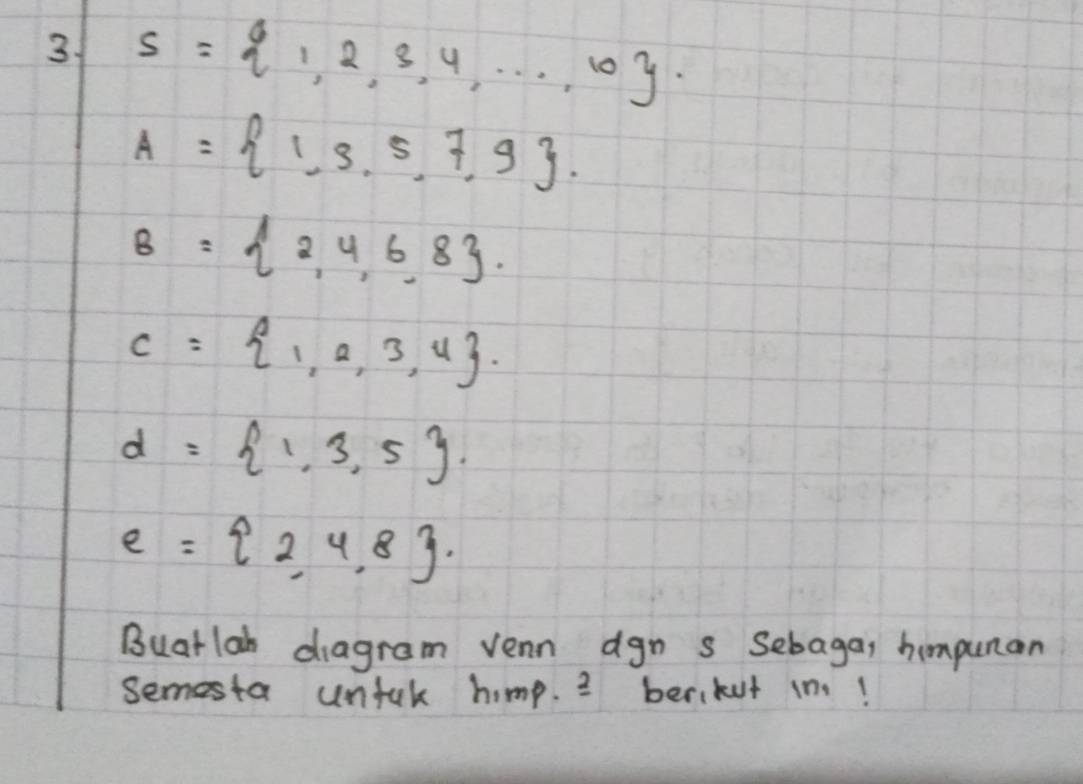 3. S = { 1, 2, 3, 4, ..., 10 }.
A = { 1, 3, 5, 7, 9 }.
B = { 2, 4, 6, 8 }.
C = { 1, 2, 3, 4 }.
d = { 1, 3, 5 }.
e = { 2, 4, 8 }.
Buatlah diagram venn dgn s sebagai himpunan
semesta untuk himp.² berikut ini !